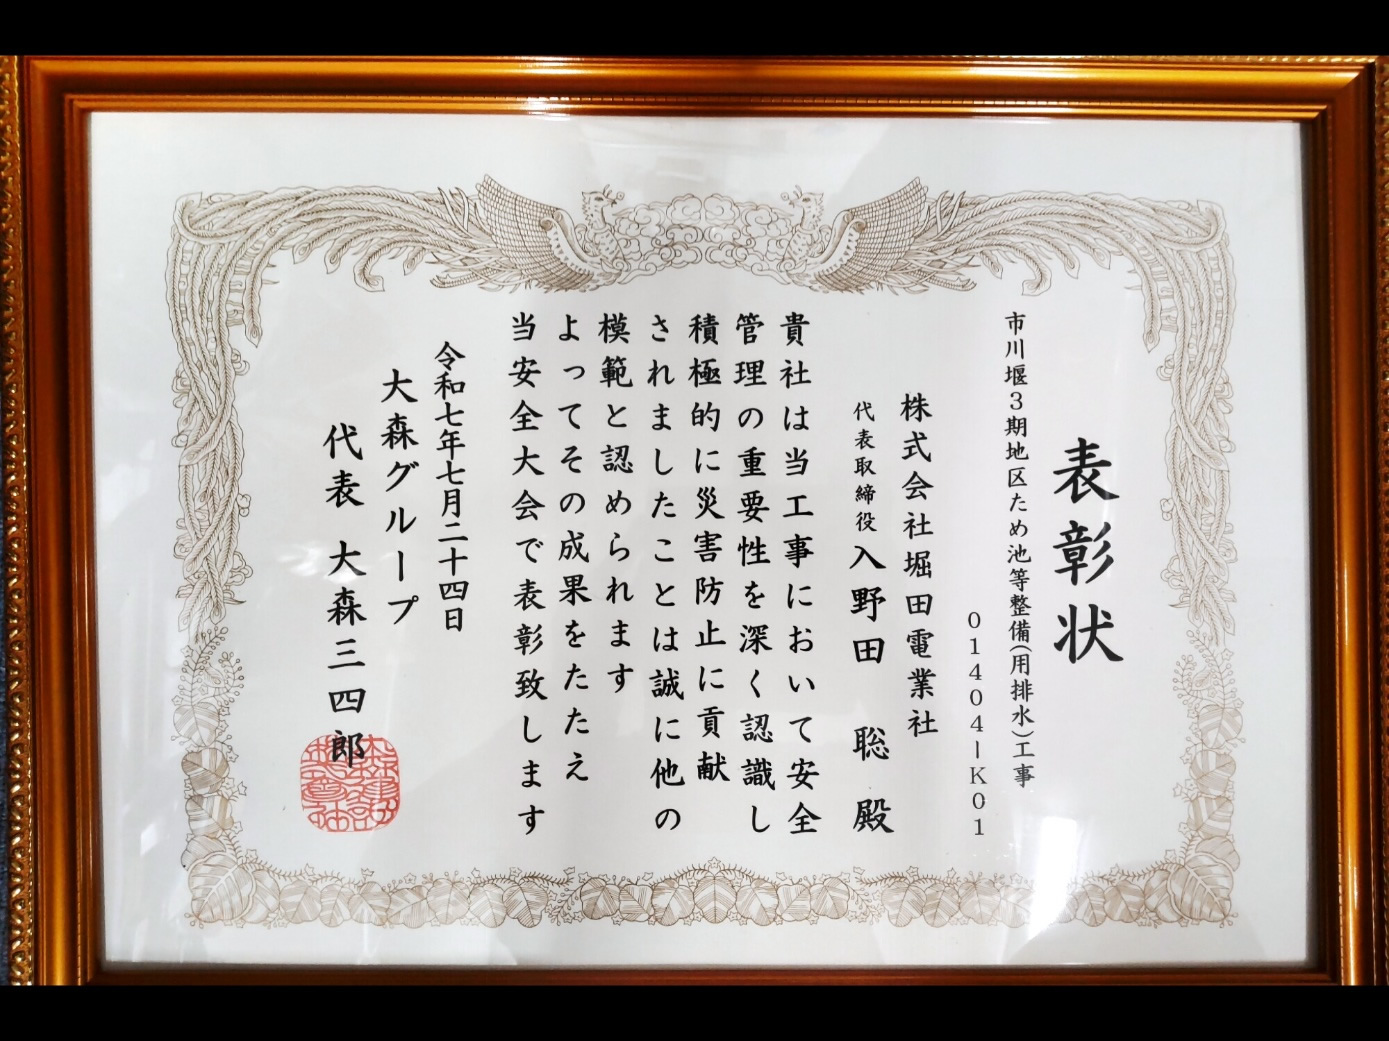 表彰状
市川堰3期地区ため池等整備(用排水)工事
01404-K01
株式会社堀田電業社
代表取締役 入野田 聡 殿
貴社は当工事において安全
管理の重要性を深く認識し
積極的に災害防止に貢献
されましたことは誠に他の
模範と認められます
よってその成果をたたえ
当安全大会で表彰致します
令和七年七月二十四日
大森グループ
代表 大森三四郎